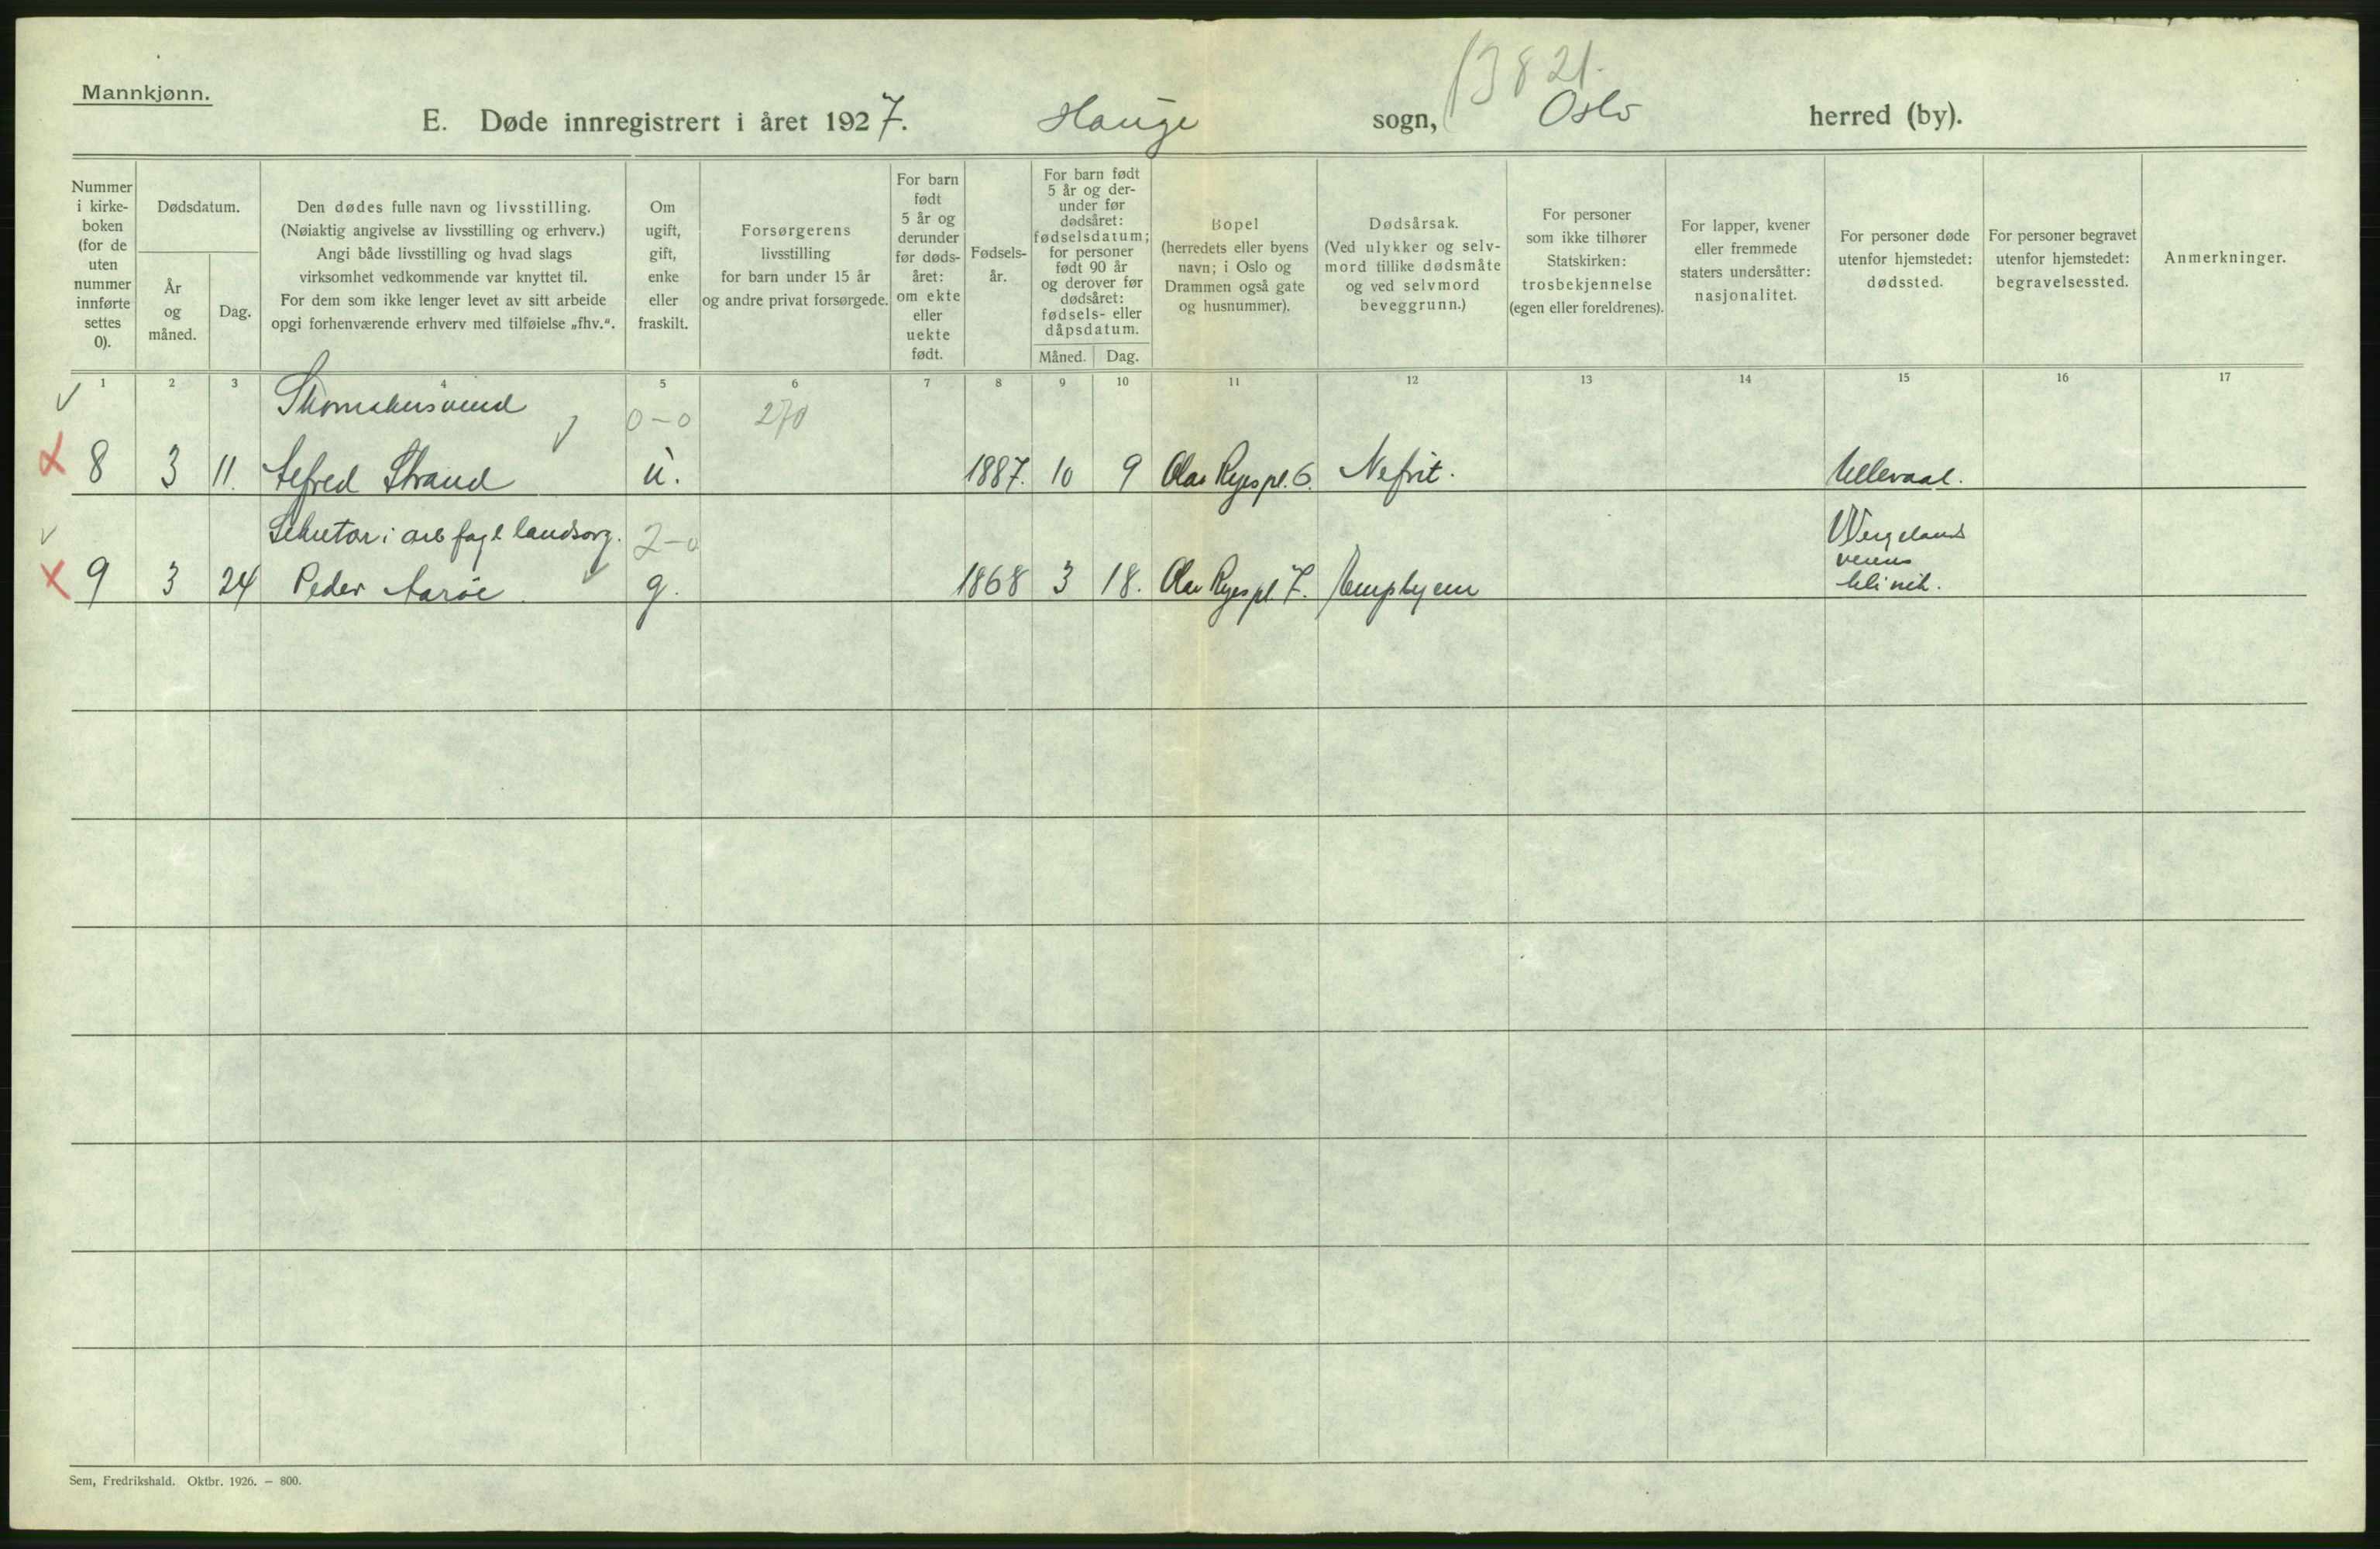 13821.
Mannkjønn.
E. Døde innregistrert i året 1927. Hauge sogn, Oslo herred (by).
Nummer i kirke-boken (for de uten nummer innførte settes 0).
Dødsdatum.
År og måned.
Dag.
Den dødes fulle navn og livsstilling.
(Nøiaktig angivelse av livsstilling og erhverv.)
Angi både livsstilling og hvad slags
virksomhet vedkommende var knyttet til.
For dem som ikke lenger levet av sitt arbeide
opgi forhenværende erhverv med tilføielse „fhv.“.
Om ugift, gift, enke eller fraskilt.
Forsørgerens
livsstilling
for barn under 15 år
og andre privat forsørgede.
For barn født 5 år og derunder før døds-året: om ekte eller uekte født.
Fødsels-år.
For barn født
5 år og der-
under før
dødsåret:
fødselsdatum;
for personer
født 90 år
og derover før
dødsåret:
fødsels- eller
dåpsdatum.
Måned. Dag.
Bopel
(herredets eller byens
navn; i Oslo og
Drammen også gate
og husnummer).
Dødsårsak.
(Ved ulykker og selv-
mord tillike dødsmåte
og ved selvmord
beveggrunn.)
For personer
som ikke tilhører
Statskirken:
trosbekjennelse
(egen eller foreldrenes).
For lapper, kvener
eller fremmede
staters undersåtter:
nasjonalitet.
For personer døde
utenfor hjemstedet:
dødssted.
For personer begravet
utenfor hjemstedet:
begravelsessted.
Anmerkninger.
1 2 3 4 5 6 7 8 9 10 11 12 13 14 15 16 17
Skomakersvend 0-0 270
8 3 11. Alfred Strand u. 1887. 10 9 Olav Ryes pl. 6. Nefrit. Ullevaal.
Sekretær i arb fagl landsorg. 2-0
9 3 24 Peder Aarøe g. 1868 3 18. Olav Ryes pl. 7. Empyem
Wergelands
veiens
klinik.
Sem, Fredrikshald. Oktbr. 1926. — 800.